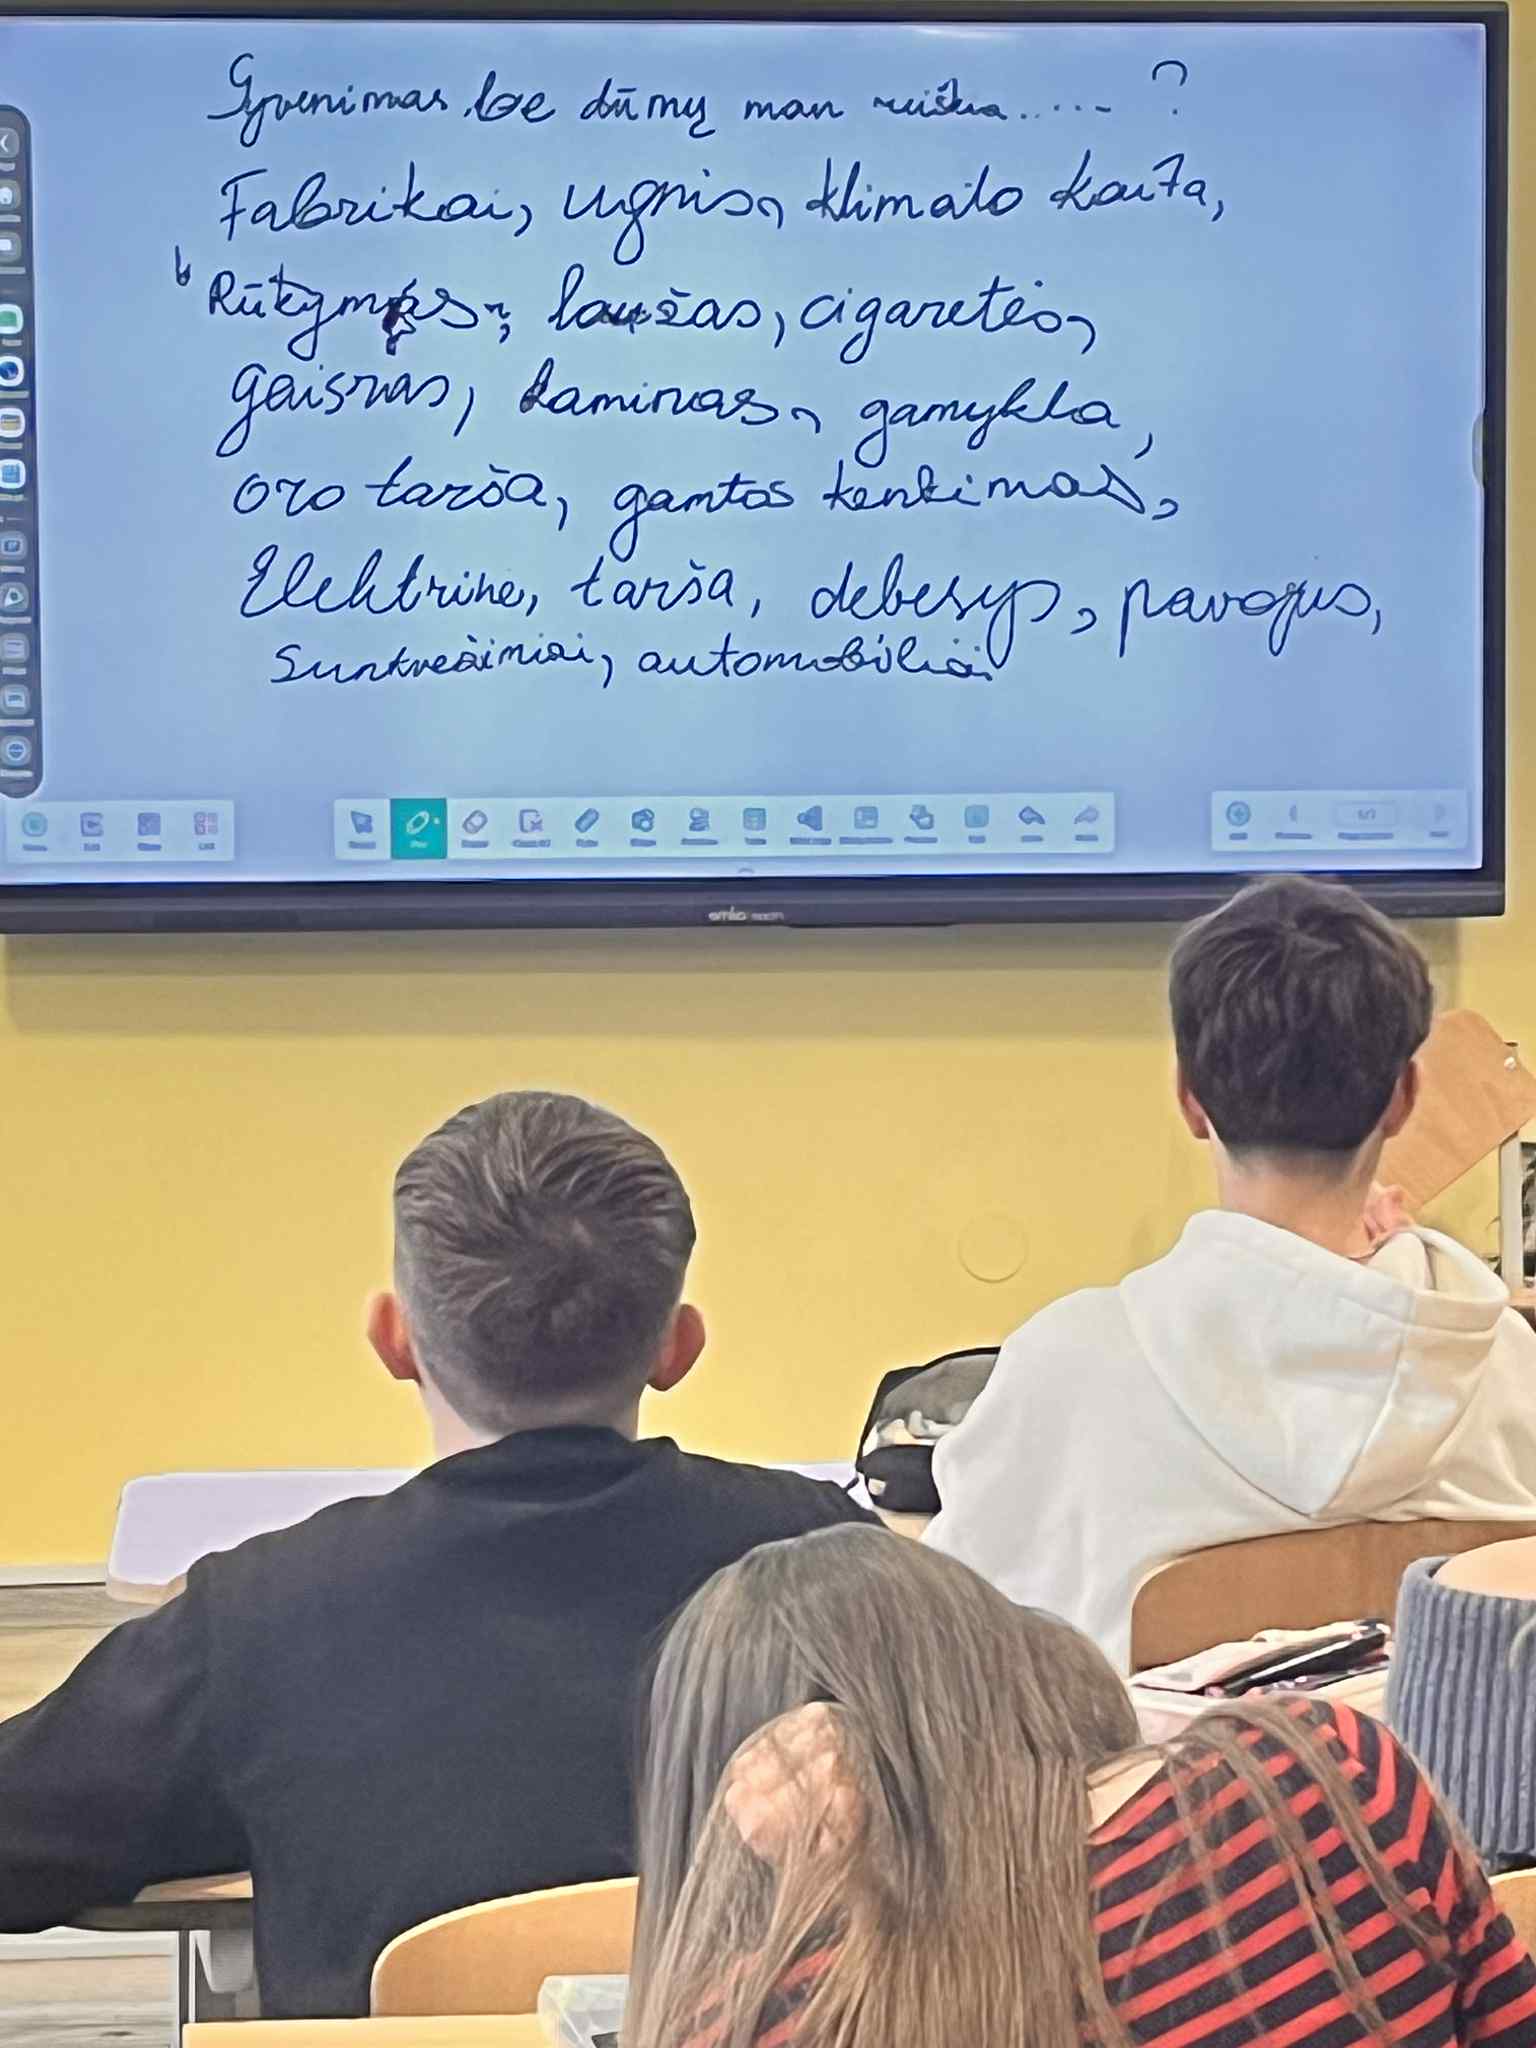 Gyvenimas be dūmų man reiškia..... ?
Fabrikai, ugnis, klimato kaita,
Rūkymas, laužas, cigaretės,
gaisras, kaminas, gamykla,
oro tarša, gamtos kenkimas,
Elektrinė, tarša, debesys, pavojus,
Sunkvežimiai, automobiliai